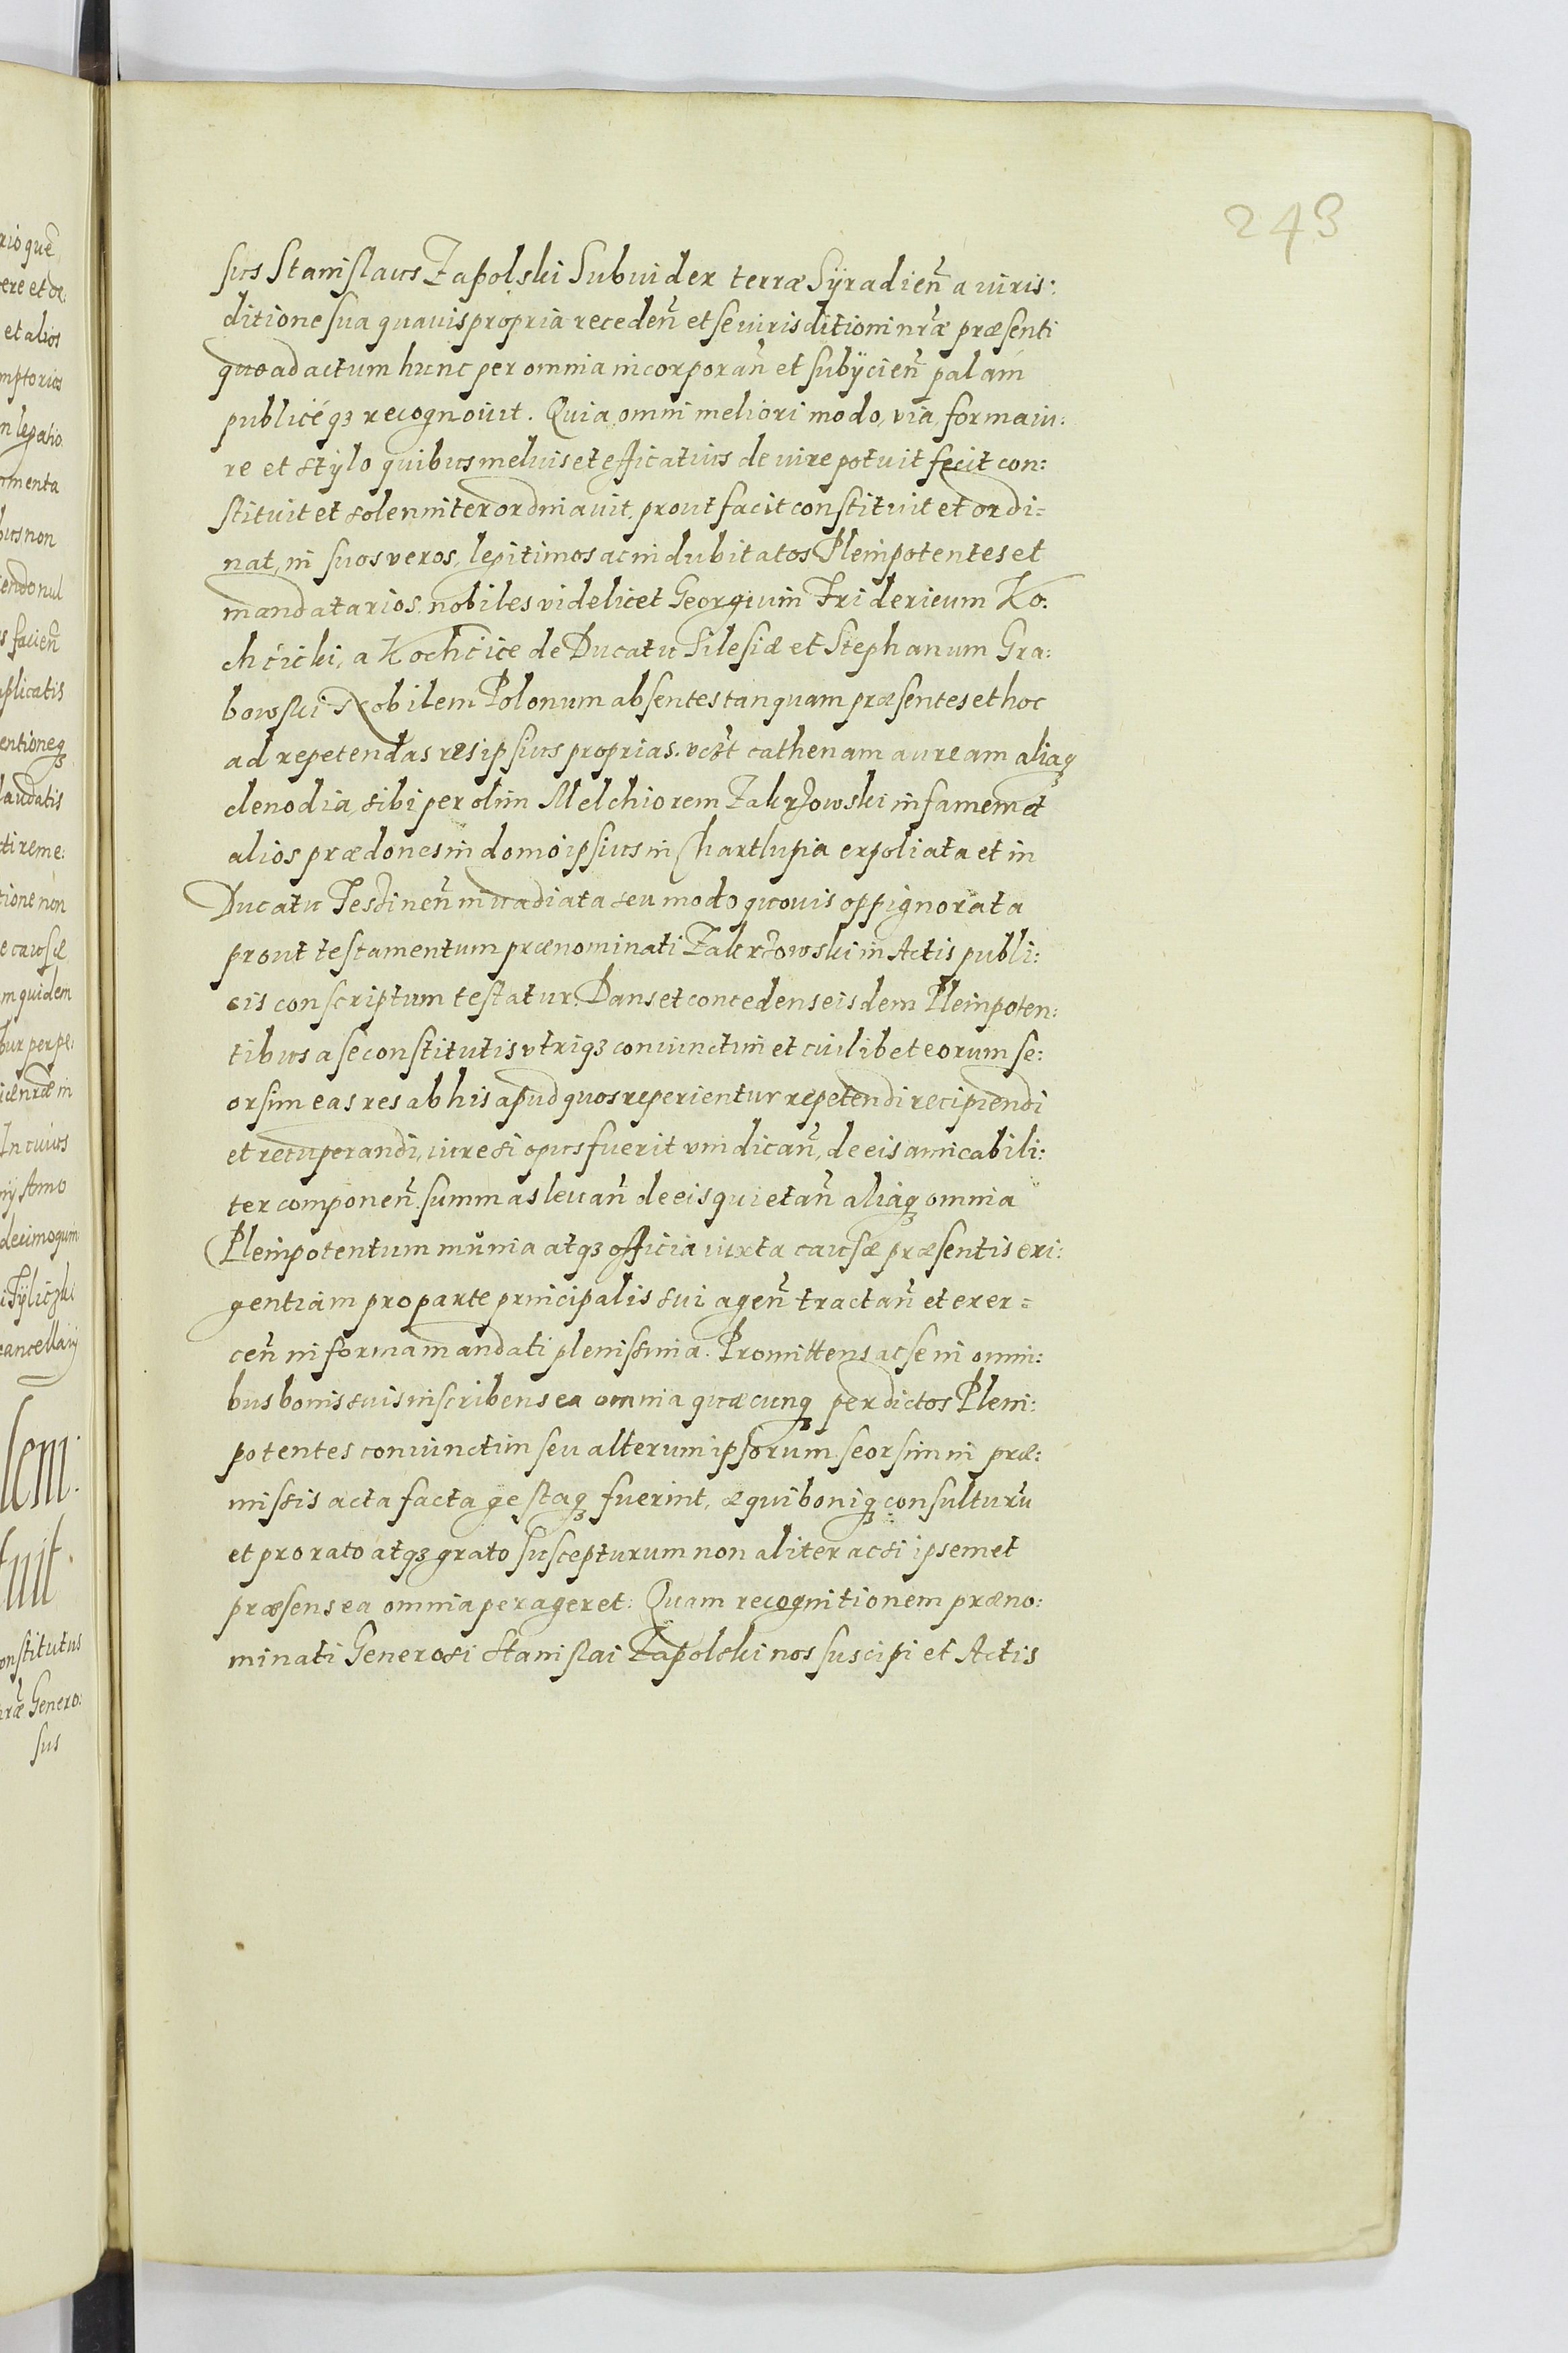 243
sus Stanislaus Zapolski Subiudex terræ Syradien̄ a iuris:
ditione sua quavis propria receden̄ et se iurisditioni nr̄æ præsenti
quoad actum hunc per omnia incorporan̄ et subÿcien̄ palam
publicéqȝ recognouit. Quia omni meliori modo, via, forma iu:
re et stylo quibus melius et efficatius de iure potuit fecit con:
stituit et solenniter ordinauit, prout facit constituit et ordi=
nat, in suos veros, legitimos ac indubitatos Plenipotentes et
mandatarios, nobiles videlicet Georgium Fridericum Ko:
chcicki, a Kochcice de Ducatu Silesiæ et Stephanum Gra:
bowski Nobilem Polonum absentes tanquam præsentes et hoc
ad repetendas res ipsius proprias, vczt cathenam auream aliaqȝ
clenodia, sibi per olim Melchiorem Zakrzowski infamem et
alios prædones in domo ipsius in Chartlupia expoliata et in
Ducatu Tesctinen̄ inuadiata seu modo quouis oppignorata
prout testamentum prænominati Zakrzowski in Actis publi:
cis conscriptum testatur. Dans et concedens eisdem Plenipoten:
tibus a se constitutis vtriqȝ coniunctim et cuilibet eorum se:
orsim eas res ab his apud quos reperientur repetendi recipiendi
et recuperandi, iure si opus fuerit vindican̄, de eis amicabili:
ter componen̄. summas leuan̄ de eis quietan̄ aliaqȝ omnia
Plenipotentum munia atqȝ officia iuxta causæ præsentis exi:
gentiam pro parte principalis sui agen̄ tractan̄ et exer=
cen̄ in forma mandati plenissima. Promittens ac se in omni:
bus bonis suis inscribens ea omnia quæcunqȝ per dictos Pleni:
potentes coniunctim seu alterum ipsorum seorsim in præ:
missis acta facta gestaqȝ fuerint, æqui boniqȝ consulturū
et pro rato atqȝ grato suscepturum non aliter ac si ipsemet
præsens ea omnia perageret. Quam recognitionem præno:
minati Generosi Stanislai Zapolski nos suscipi et Actis